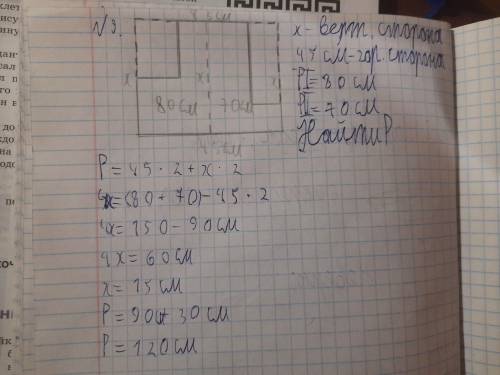 №3.
45 см
x - верт. сторона
45 см - гор. сторона
PI = 80 см
PII = 70 см
Найти P
x x x
80 см 70 см
45 см
P = 45 · 2 + x · 2
4x = (80 + 70) - 45 · 2
4x = 150 - 90 см
4x = 60 см
x = 15 см
P = 90 + 30 см
P = 120 см